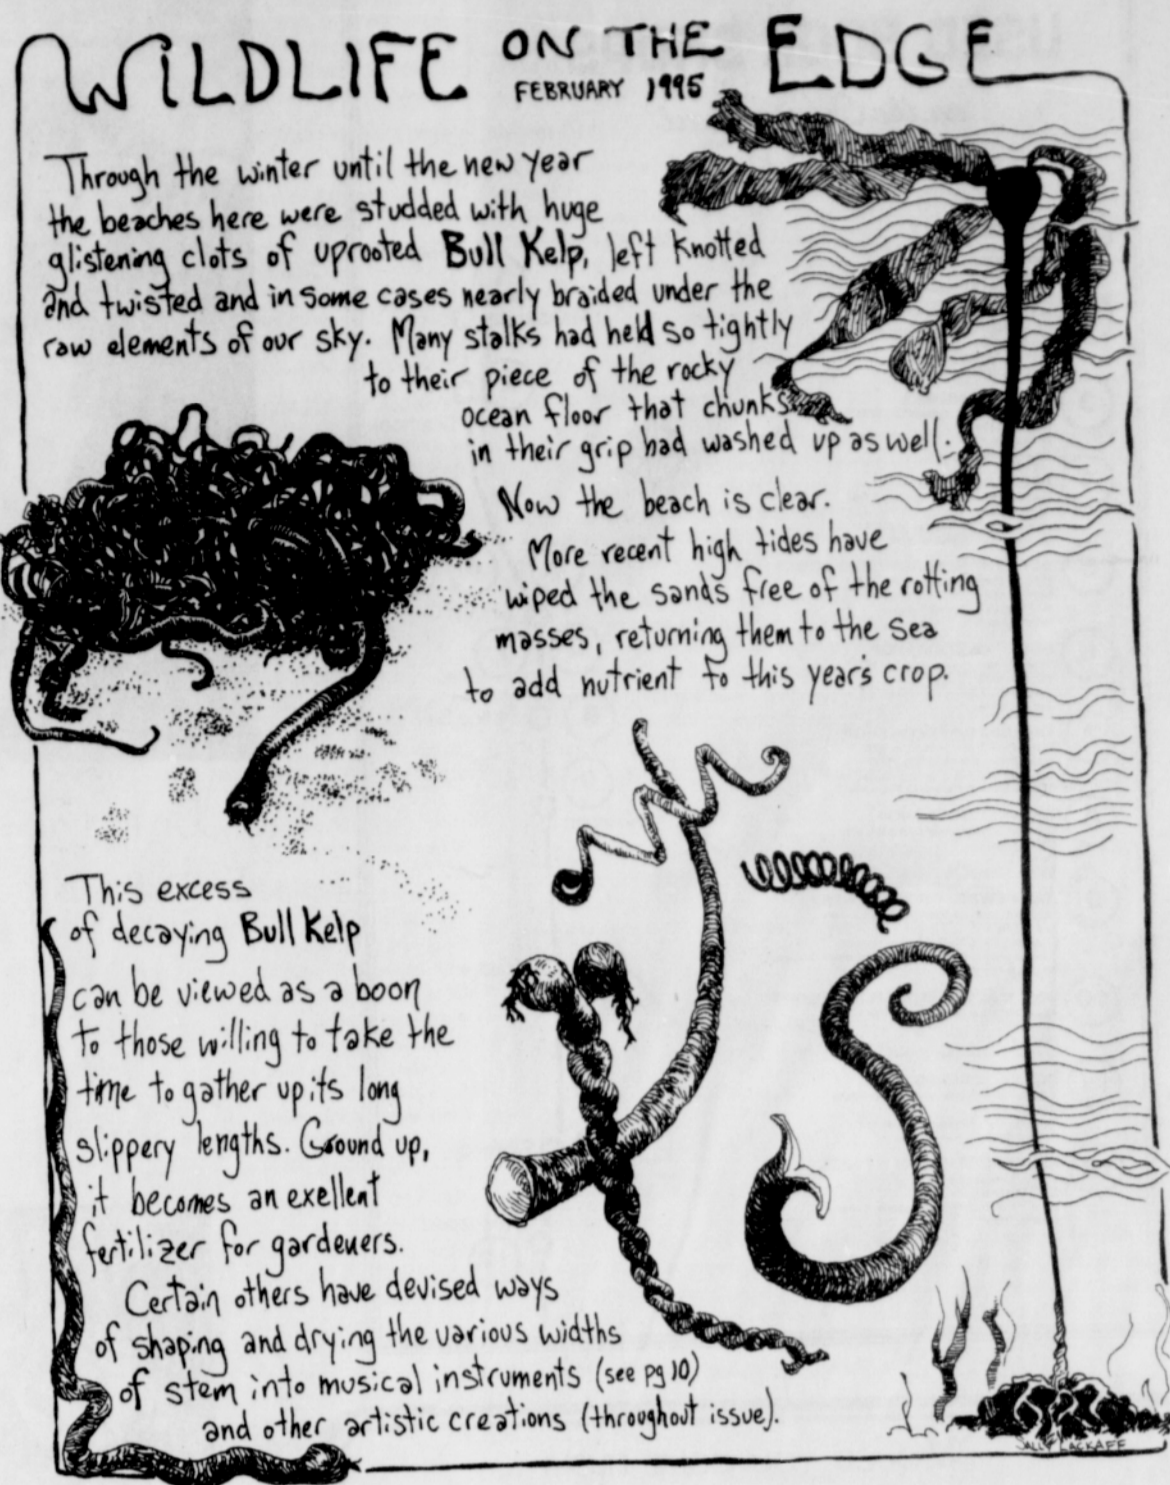 WILDLIFE ON THE EDGE
FEBRUARY 1995
Through the winter until the new year
the beaches here were studded with huge
glistening clots of uprooted Bull Kelp, left knotted
and twisted and in some cases nearly braided under the
raw elements of our sky. Many stalks had held so tightly
to their piece of the rocky
ocean floor that chunks
in their grip had washed up as well.
Now the beach is clear.
More recent high tides have
wiped the sands free of the rotting
masses, returning them to the sea
to add nutrient to this year's crop.
This excess
of decaying Bull Kelp
can be viewed as a boon
to those willing to take the
time to gather up its long
slippery lengths. Ground up,
it becomes an exellent
fertilizer for gardeners.
Certain others have devised ways
of shaping and drying the various widths
of stem into musical instruments (see pg 10)
and other artistic creations (throughout issue).
SALLY LACKAFF